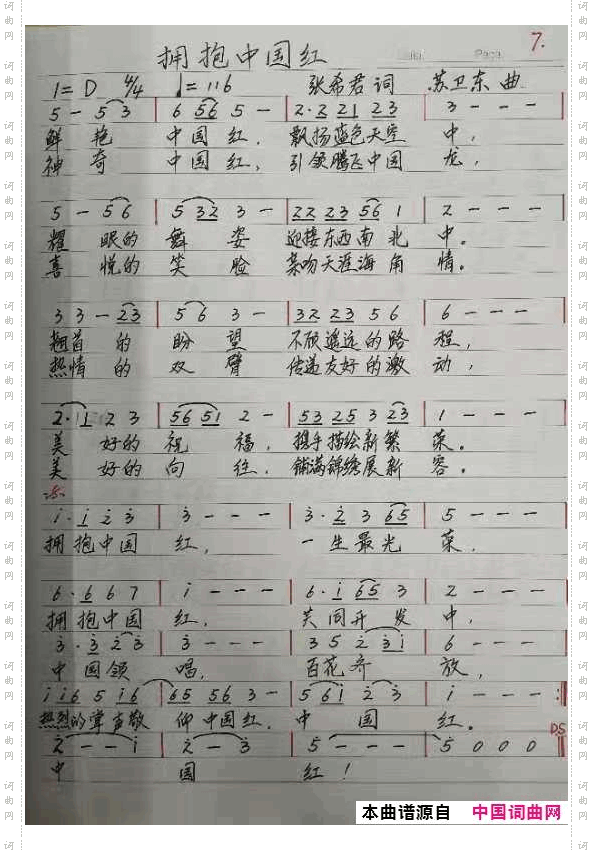 7.
拥抱中国红
1=D 4/4 ♩=116 张希君 词 苏卫东 曲
5 - 5 3 | 6 56 5 - | 2· 2 21 23 | 3 - - - |
鲜 艳 中国红， 飘扬蓝色天空 中，
神 奇 中国红， 引领腾飞中国 龙，
5 - 5 6 | 5 32 3 - | 22 23 56 1 | 2 - - - |
耀 眼的 舞 姿 迎接东西南北 中。
喜 悦的 笑 脸 亲吻天涯海角 情。
3 3 - 23 | 5 6 3 - | 32 23 5 6 | 6 - - - |
翘首 的 盼 望 不顾遥远的路 程，
热情 的 双 臂 传递友好的激 动，
2· 1 2 3 | 56 51 2 - | 53 25 3 23 | 1 - - - |
美 好的 祝 福， 携手描绘新繁 荣。
美 好的 向 往， 铺满锦绣展新 容。
i· i 2 3 | 3 - - - | 3· 2 3 65 | 5 - - - |
拥抱中国 红， 一生最光 荣，
6· 6 6 7 | i - - - | 6· i 65 3 | 2 - - - |
拥抱中国 红， 共同开发 中，
3· 3 2 3 | 3 - - - | 3 5 2 31 | 6 - - - |
中国领 唱， 百花齐 放，
i i6 5 i6 | 65 56 3 - | 5 6i 2 3 | i - - - :|
热烈的掌声敬 仰中国红， 中 国 红。
D.S
2 - - i | 2 - - 3 | 5 - - - | 5 0 0 0 ‖
中 国 红！
本曲谱源自 中国词曲网
词曲网